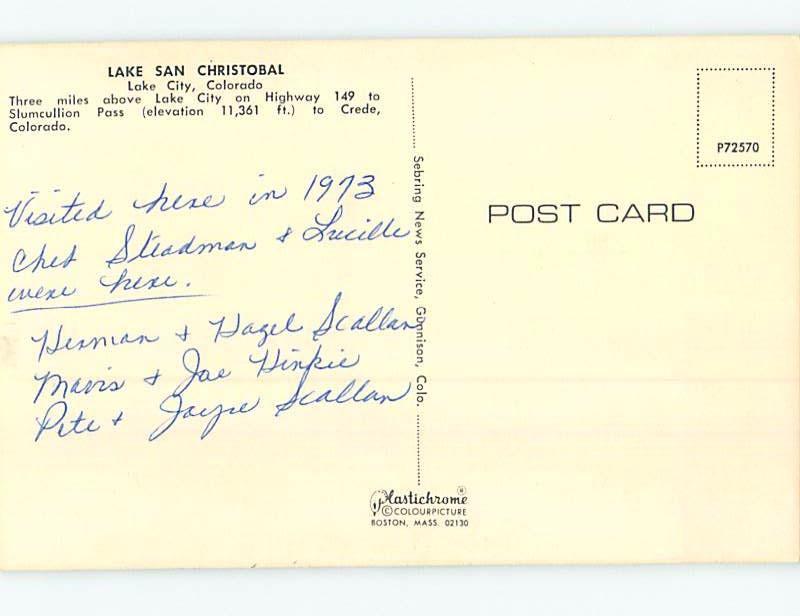 LAKE SAN CHRISTOBAL
Lake City, Colorado
Three miles above Lake City on Highway 149 to
Slumcullion Pass (elevation 11,361 ft.) to Crede,
Colorado.
Visited here in 1973
Chet Steadman & Lucille
were here.
Herman & Hazel Scallan
Mavis & Joe Hinkie
Pete & Jayne Scallan
Sebring News Service, Gunnison, Colo.
Plastichrome ®
© COLOURPICTURE
BOSTON, MASS. 02130
P72570
POST CARD